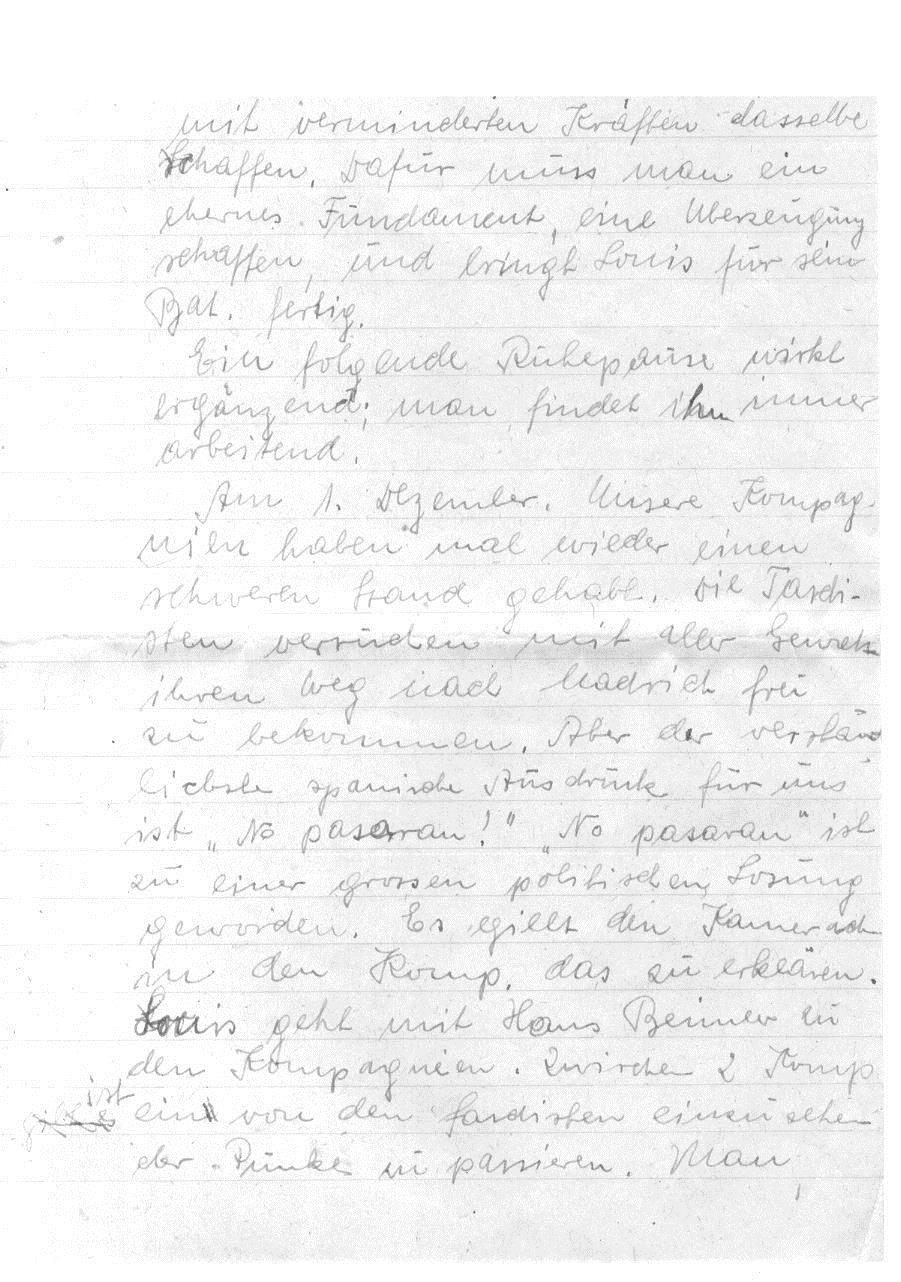 mit verminderten Kräften dasselbe
schaffen. Dafür muss man ein
ehernes Fundament, eine Uberzeugung
schaffen, und bringt Louis für sein
Bat. fertig.
Ein folgende Ruhepause wirkt
ergänzend; man findet ihn immer
arbeitend.
Am 1. Dezember. Unsere Kompag-
nien haben mal wieder einen
schweren Stand gehabt. Die Faschi-
sten versuchen mit aller Gewalt
ihren Weg nach Madrid frei
zu bekommen. Aber der verständ
lichste spanische Ausdruck für uns
ist „No pasaran!" „No pasaran" ist
zu einer grossen politischen Losung
geworden. Es gillt den Kamerad
in den Komp. das zu erklären.
Louis geht mit Hans Beimler zu
den Kompagnien. Zwischen 2 Komp
ist ein von den Faschisten einzusehen
der Punkt zu passieren. Man